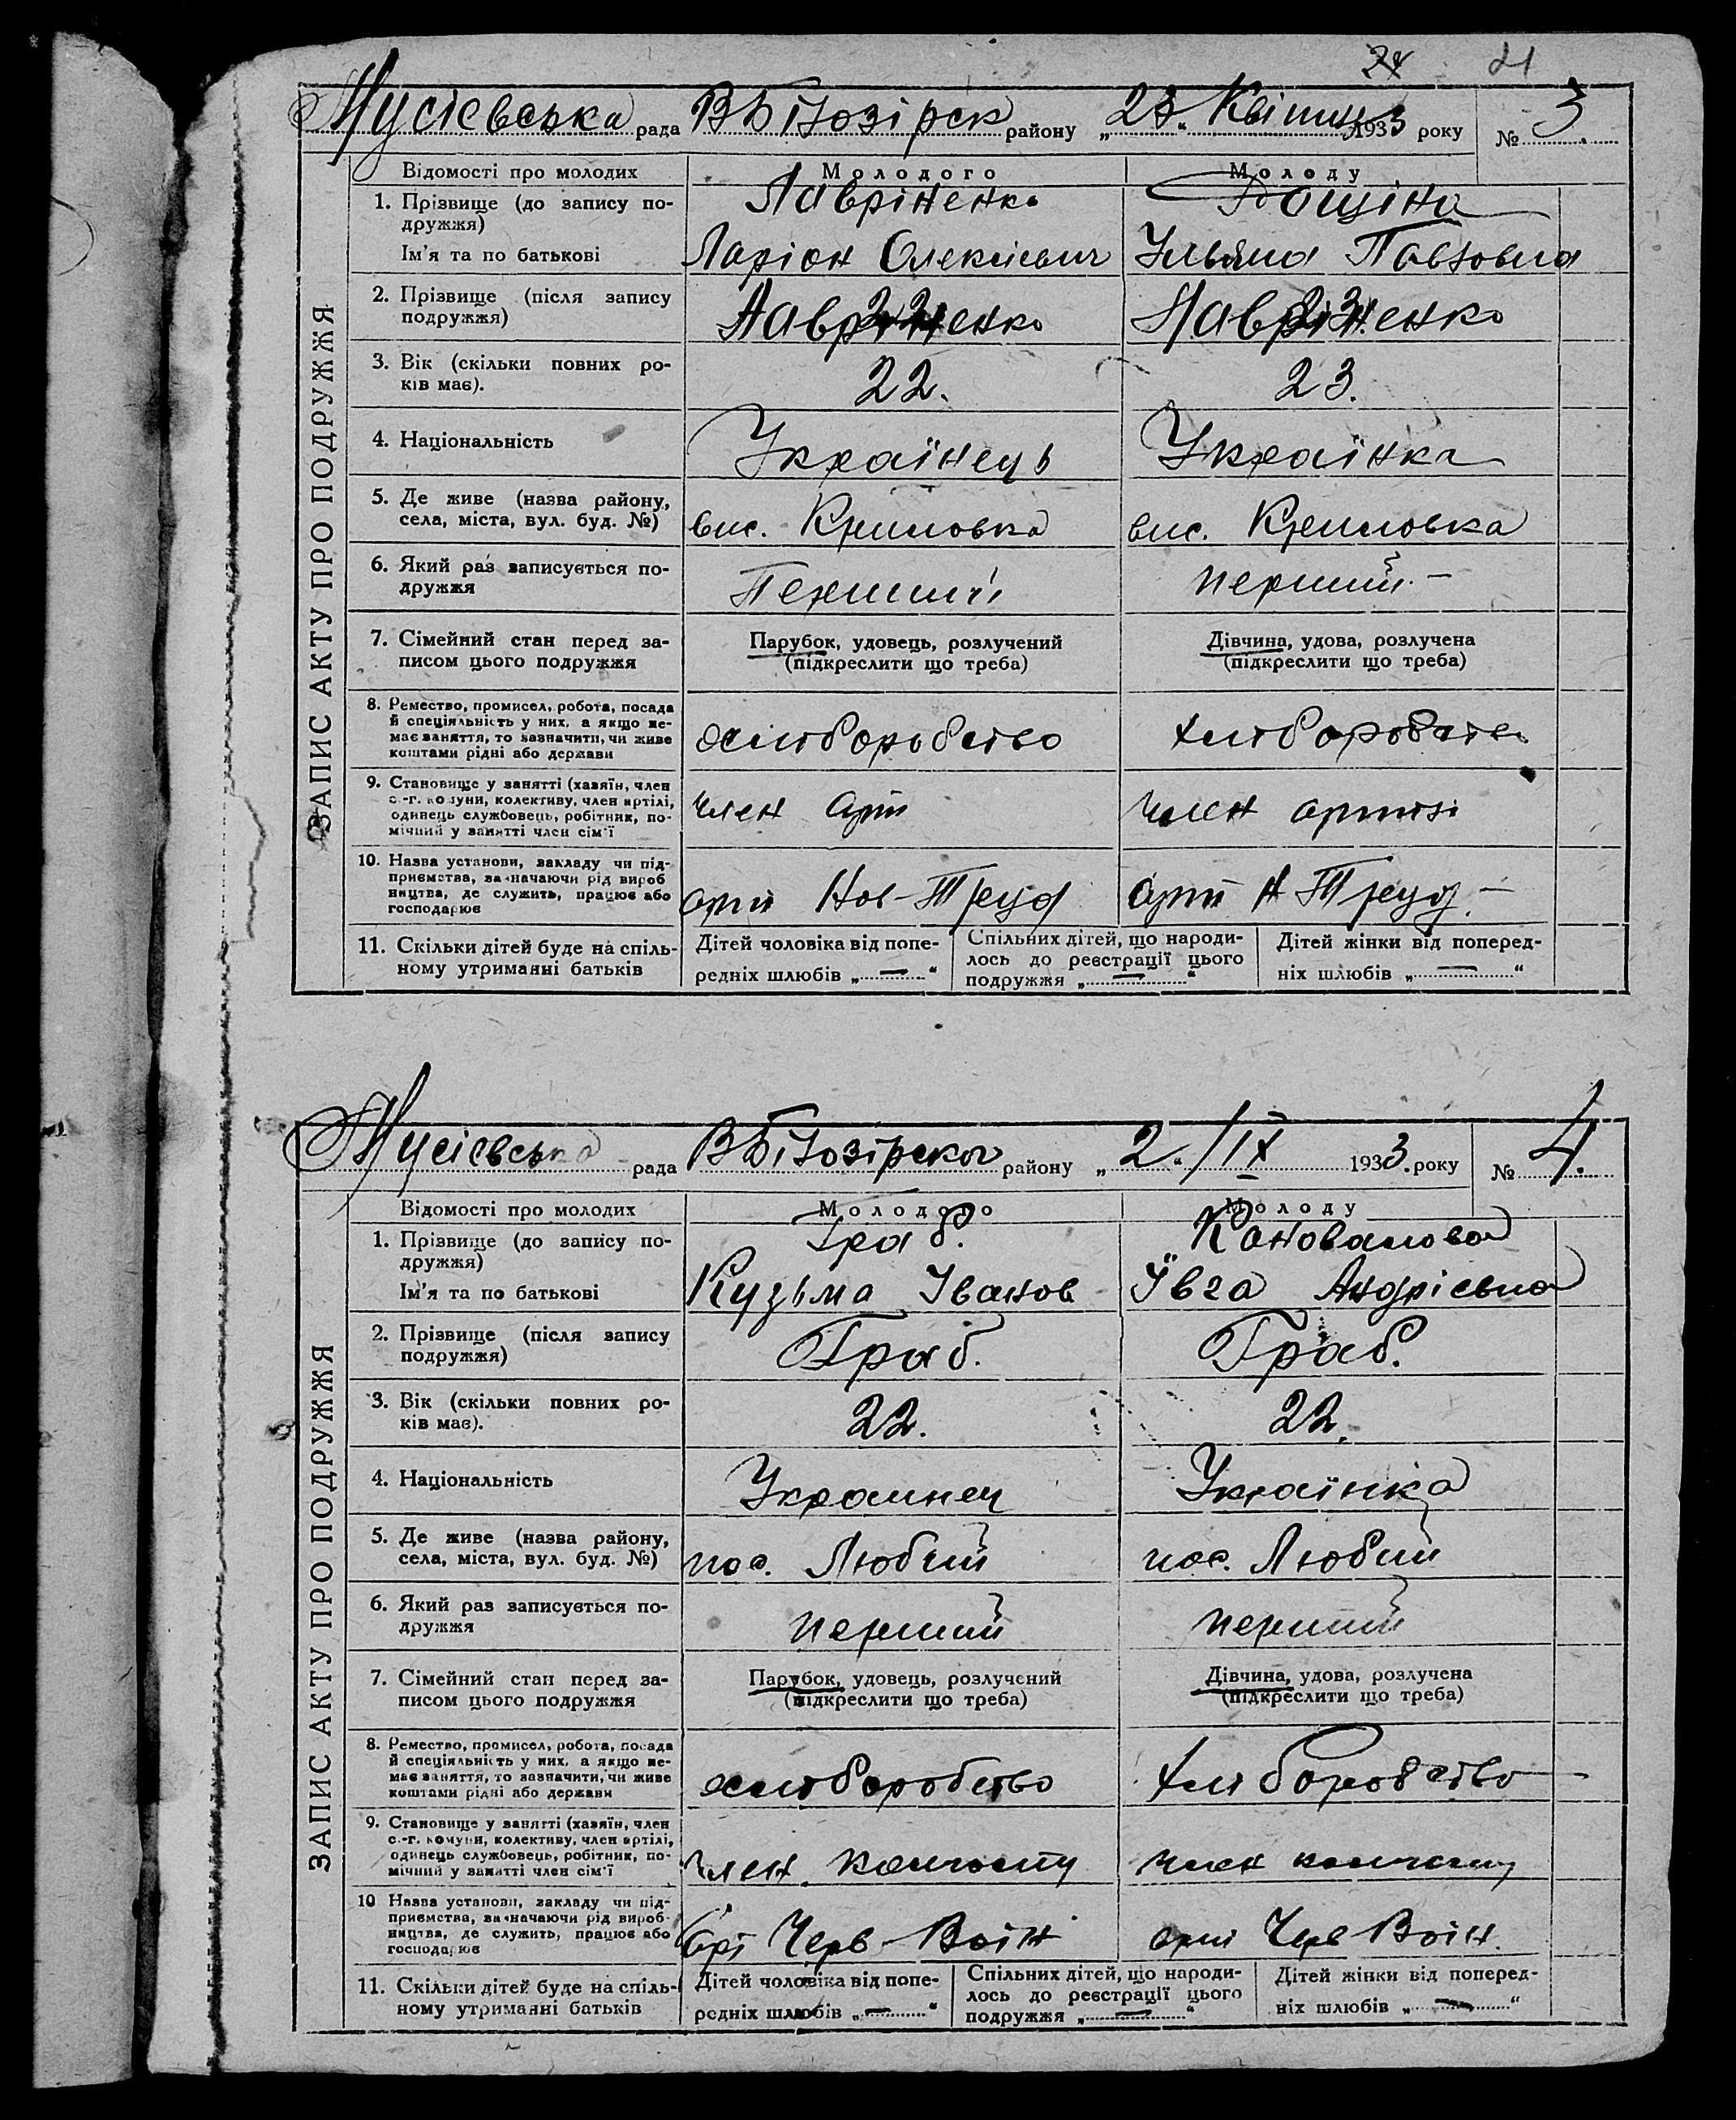 24 21
Мусієвська рада ВБілозірск району „23“ Квітня 1933 року № 3.
Відомості про молодих Молодого Молоду
1. Прізвище (до запису по- Лавріненко
дружжя)
Ім'я та по батькові Ларіон Олексієвич Ульяна Павловна
2. Прізвище (після запису Лавріненко Лавріненко
подружжя)
3. Вік (скільки повних ро- 22. 23.
ків має).
4. Національність Українець Українка
5. Де живе (назва району,
села, міста, вул. буд. №) вис. Кримовка вис. Кримовка
6. Який раз записується по- Перший перший. –
дружжя
7. Сімейний стан перед за- Парубок, удовець, розлучений Дівчина, удова, розлучена
писом цього подружжя (підкреслити що треба) (підкреслити що треба)
8. Ремество, промисел, робота, посада
й спеціяльність у них, а якщо не-
має заняття, то зазначити, чи живе хлібороб­ство хліборобство
коштами рідні або держави
9. Становище у занятті (хазяїн, член
с.-г. комуни, колективу, член артілі, член арт член артілі
одинець службовець, робітник, по-
мічний у занятті член сім'ї
10. Назва установи, закладу чи під-
приємства, зазначаючи рід вироб
ництва, де служить, працює або арт Нов-Труд арт Н Труд. –
господарює
11. Скільки дітей буде на спіль- Дітей чоловіка від попе- Спільних дітей, що народи- Дітей жінки від поперед-
ному утриманні батьків редніх шлюбів „—“ лось до реєстрації цього ніх шлюбів „—“
подружжя „—“
ЗАПИС АКТУ ПРО ПОДРУЖЖЯ
Мусієвська рада ВБілозірског району „2“ /IX 1933. року № 4.
Відомості про молодих Молодого Молоду
1. Прізвище (до запису по- Граб. Коновалова
дружжя)
Ім'я та по батькові Кузьма Іванов Ївга Андрієвна
2. Прізвище (після запису Граб. Граб.
подружжя)
3. Вік (скільки повних ро- 22. 22.
ків має).
4. Національність Украинец Українка
5. Де живе (назва району,
села, міста, вул. буд. №) пос. Любий пос. Любий
6. Який раз записується по- перший перший
дружжя
7. Сімейний стан перед за- Парубок, удовець, розлучений Дівчина, удова, розлучена
писом цього подружжя (підкреслити що треба) (підкреслити що треба)
8. Ремество, промисел, робота, посада
й спеціяльність у них, а якщо не-
має заняття, то зазначити, чи живе хліборобство хліборобство
коштами рідні або держави
9. Становище у занятті (хазяїн, член
с.-г. комуни, колективу, член артілі,
одинець службовець, робітник, по- член член
мічний у занятті член сім'ї
10 Назва установи, закладу чи під-
приємства, зазначаючи рід вироб-
ництва, де служить, працює або арт Черв-Воін арт Черв Воін.
господарює
11. Скільки дітей буде на спіль- Дітей чоловіка від попе- Спільних дітей, що народи- Дітей жінки від поперед-
ному утриманні батьків редніх шлюбів „—“ лось до реєстрації цього ніх шлюбів „—“
подружжя „—“
ЗАПИС АКТУ ПРО ПОДРУЖЖЯ